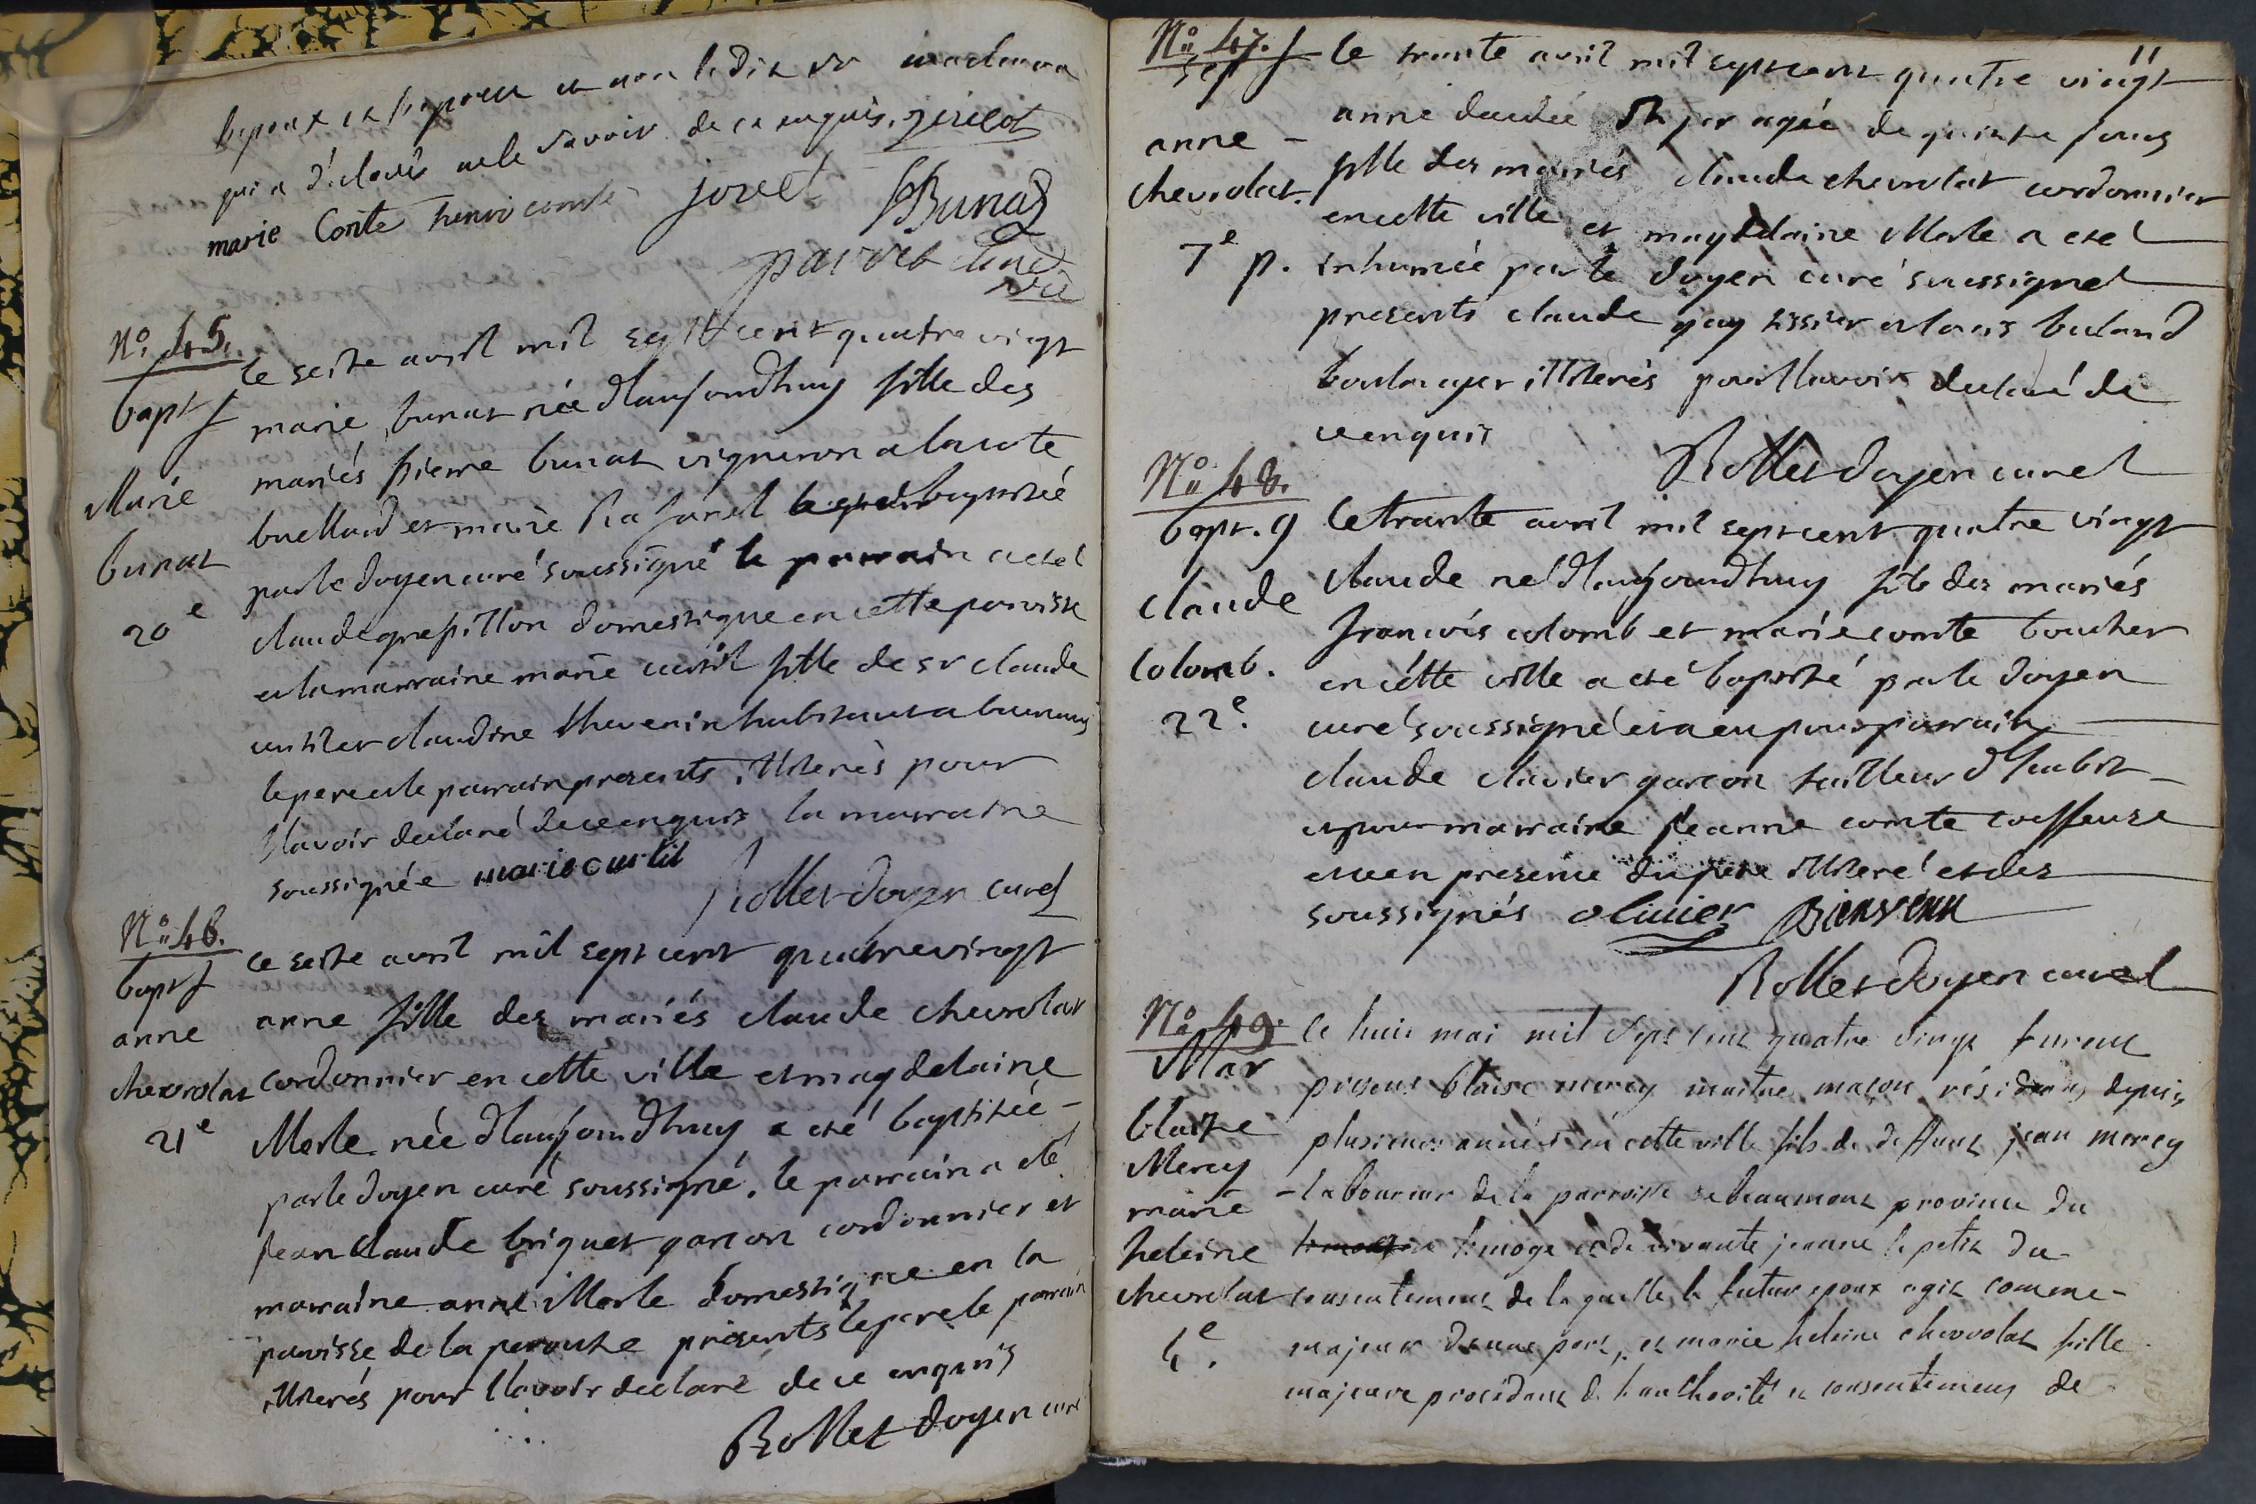 qui a déclaré ne le savoir de ce enquis. girelot
marie Conte henri comte jozect Bunod
N° 45.
bapt f
Marie
bunat
20e
le seize avril mil sept cent quatre vingt
marie bunat née d'laujourdhuy fille des
mariés pierre bunat vigneron a la cote
et marie baptisée
par le doyen curé soussigné le parrain a eté
claude grepillon domestique en cette parroisse
et la marraine marie curtil fille de sr claude
curtil et claudine thevenin habitants a
le pere et le parrain presents illiterés pour
l'lavoir declaré de ce enquis la marraine
soussignée marie curtil
Rollet doyen curé
N° 46.
bapt f
anne
chevrolat
21e
ce seize avril mil sept cent quatrevingt
anne fille des mariés claude chevrolat
cordonnier en cette ville et magdelaine
Merle née d'laujourdhuy a eté baptisée -
par le doyen curé soussigné. le parrain a eté
jean claude briquet garcon cordonnier et
marraine anne Merle domestique en la
paroisse de la peyrouze présents le pere le parrain
illiterés pour l'lavoir declaré de ce enquis
Rollet doyen curé
11
N° 47.
sep f
anne -
chevrolat.
7e p.
le trante avril mil sept cent quatre vingt
anne decedée agée de quinze jours
fille des mariés claude chevrolat cordonnier
en cette ville et magdelaine Merle a eté
inhumée par le doyen curé soussigné
presents claude gay tissier et louis buland
boulanger illiterés pour l'lavoir declaré de
ce enquis
Rollet doyen curé
N° 48.
bapt. g
claude
Colomb.
22e.
Le trante avril mil sept cent quatre vingt
claude né d'laujourdhuy fils des mariés
francois colomb et marie comte boucher
en cette ville a eté baptisé par le doyen
curé soussigné et a eu pour parrain
claude clavier garcon tailleur d'lhabit
et pour marraine jeanne comte coeffeuse
et ce en presence du pere illiteré et des
soussignés olivier Bienvenu
Rollet doyen curé
N° 49.
Mar
blaize
Mercy
marie
heleine
chevrolat
4e.
Le huit mai mil sept cent quatre vingt furent
présens blaise mercy maitre maçon résidant depuis
plusieurs années en cette ville fils de deffunt jean mercy
- laboureur de la parroisse de beaumont province du
limoge et de vivante jeanne le petit du
consentement de laquelle le futur epoux agit comme -
majeur d'une part, et marie heleine chevrolat fille
majeure procédant de l'authorité et consentement de